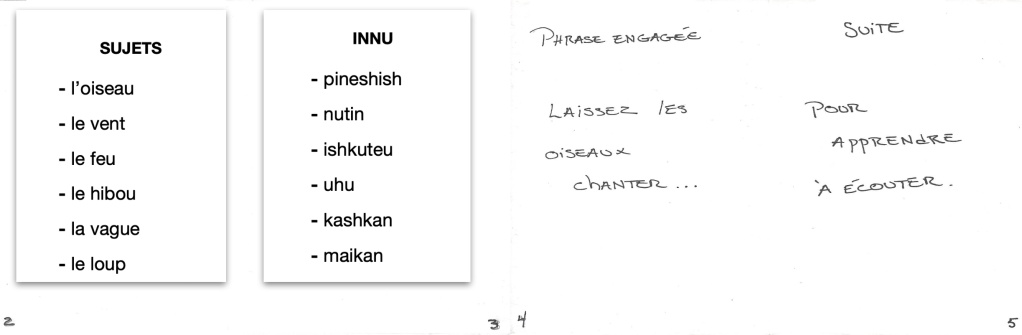 SUJETS
- l'oiseau
- le vent
- le feu
- le hibou
- la vague
- le loup
2
INNU
- pineshish
- nutin
- ishkuteu
- uhu
- kashkan
- maikan
3
PHRASE ENGAGÉE
LAISSEZ LES
OISEAUX
CHANTER...
4
SUITE
POUR
APPRENDRE
À ÉCOUTER.
5